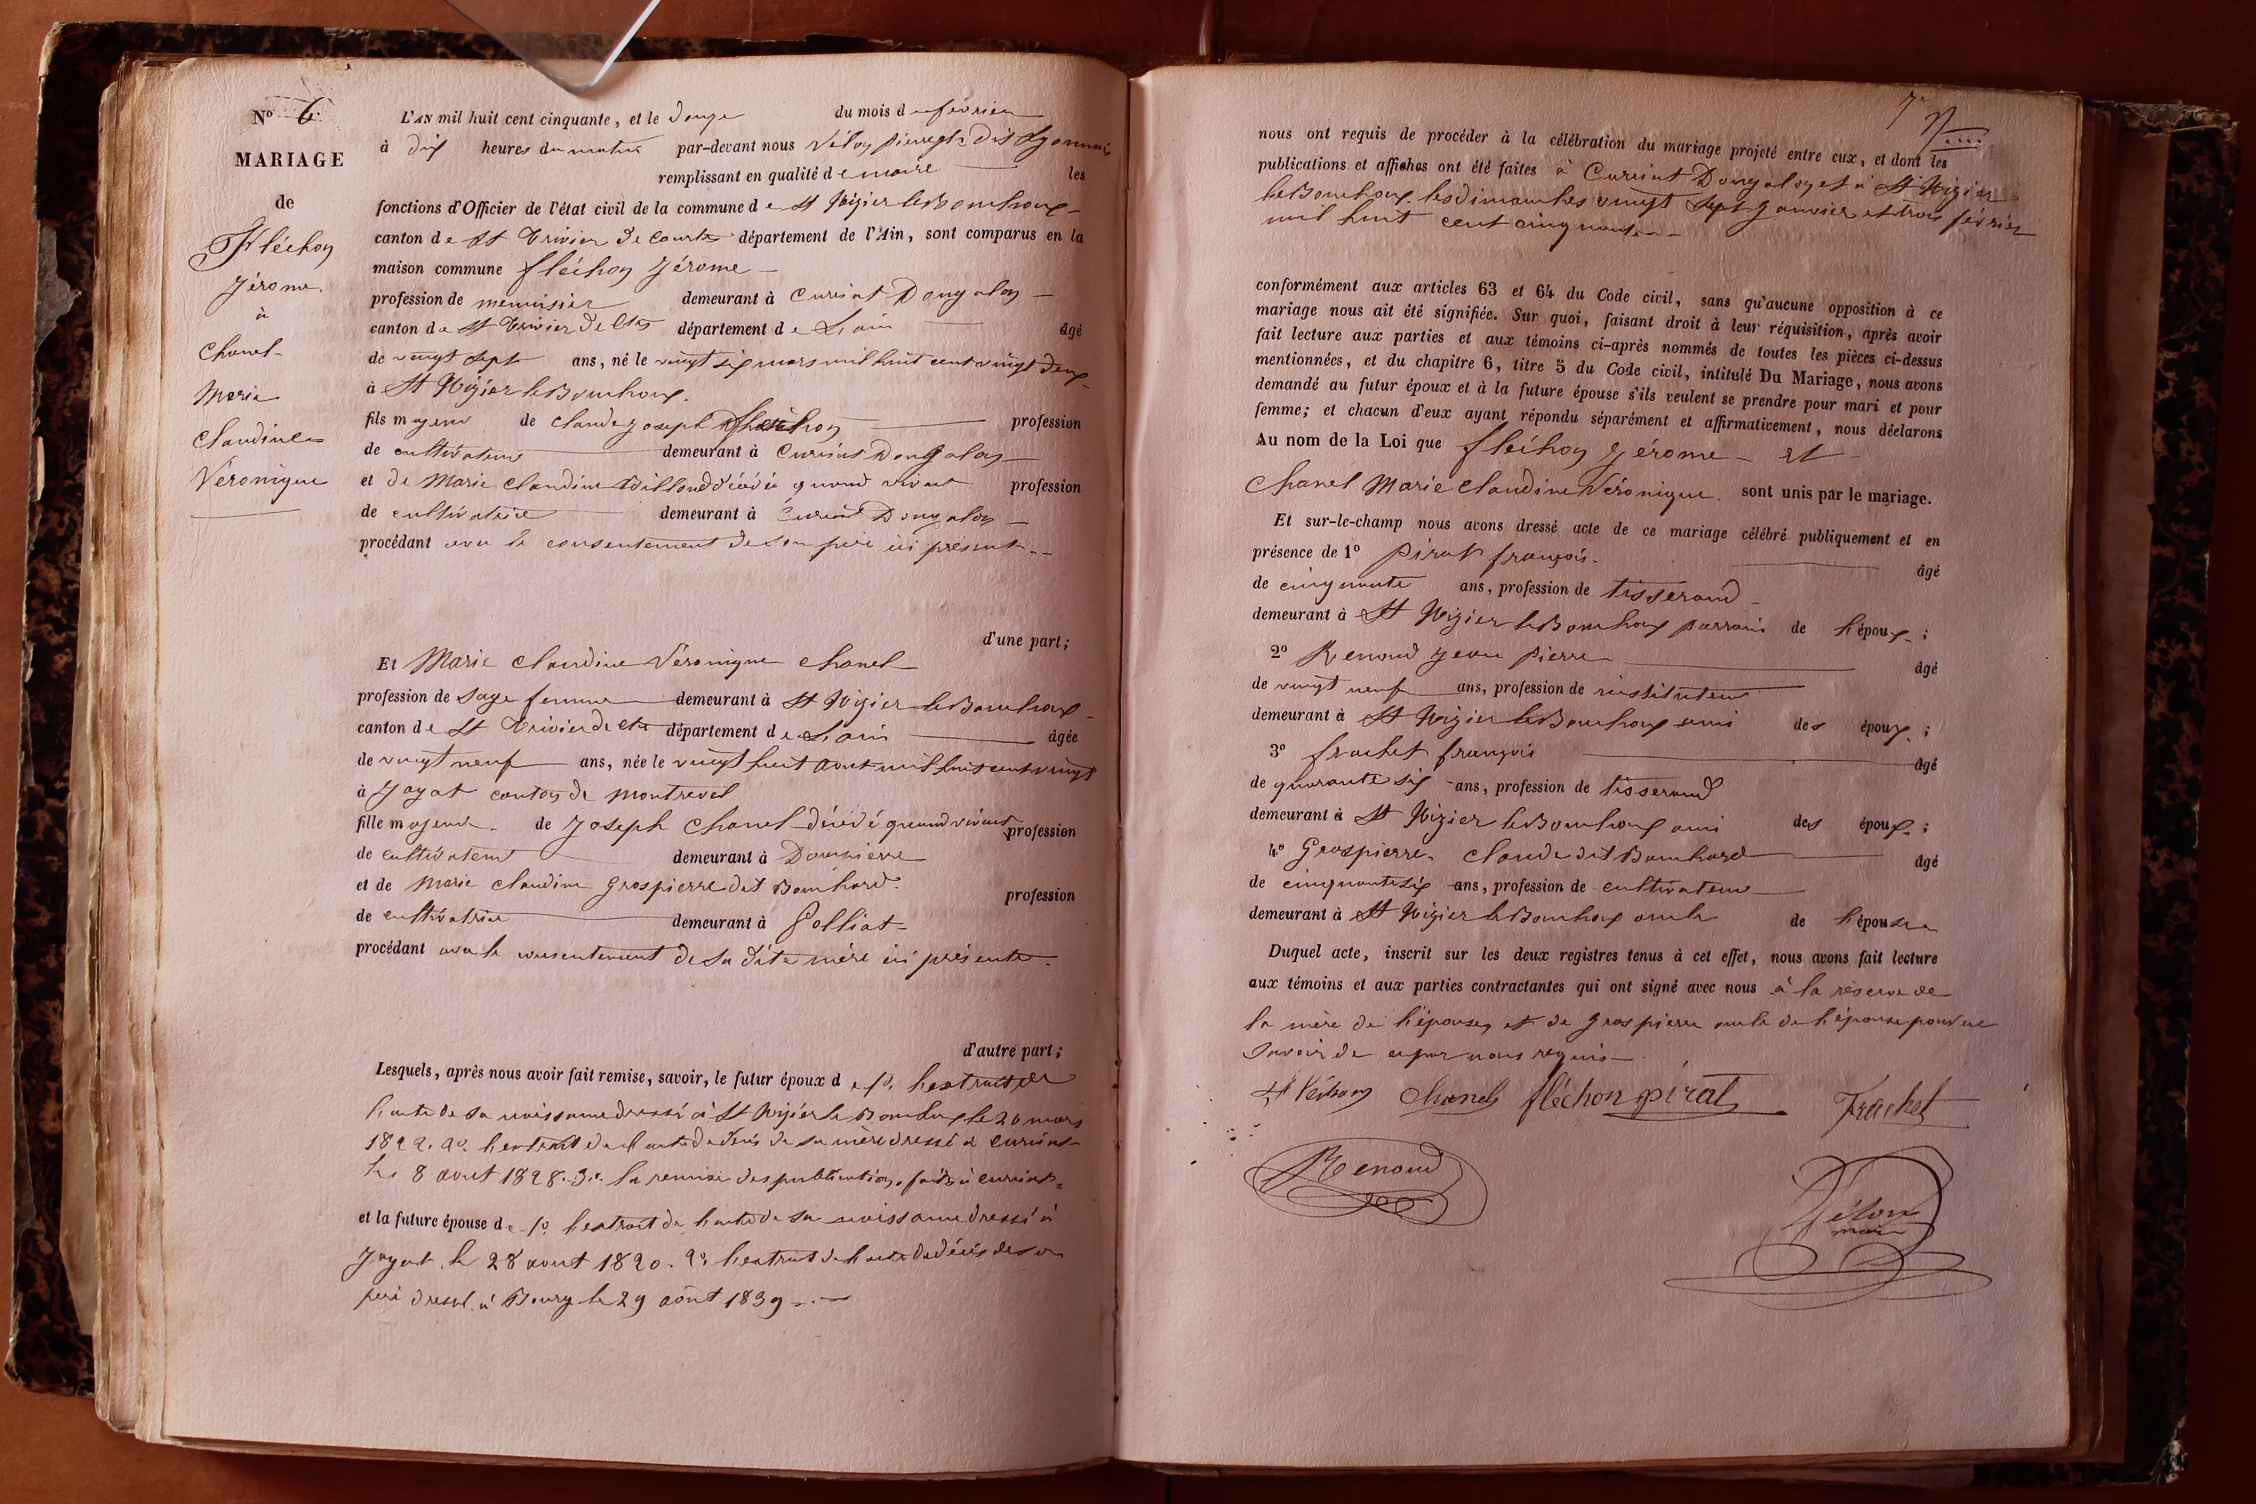 N.º 6
MARIAGE
de
Fléchon
Jérome
à
Chanel
Marie
Claudine
Véronique
L'AN mil huit cent cinquante, et le douze du mois de février
à dix heures du matin par-devant nous Vélon pierre dit Lyonnais
remplissant en qualité de maire les
fonctions d'Officier de l'état civil de la commune de St Nizier le Bouchoux
canton de St Trivier de Courtes département de l'Ain, sont comparus en la
maison commune fléchon Jérome
profession de menuisier demeurant à Curciat Dongalon
canton de St Trivier de Ctes département de L'ain âgé
de vingt sept ans, né le vingt six mars mil huit cent vingt deux
à St Nizier le Bouchoux
fils majeur de claude joseph fléchon profession
de cultivateur demeurant à Curciat Dongalon
et de Marie claudine décédée quand vivait profession
de cultivatrice demeurant à Curciat Dongalon
procédant avec le consentement de son père ici présent
d'une part;
Et Marie claudine Véronique chanel
profession de sage femme demeurant à St Nizier le Bouchoux
canton de St Trivier de Ctes département de L'ain âgée
de vingt neuf ans, née le vingt huit aout mil huit cent vingt
à Jayat canton de Montrevel
fille majeure de Joseph Chanel décédé quand vivait profession
de cultivateur demeurant à Dompierre
et de Marie claudine Grospierre dit Bouchard profession
de cultivatrice demeurant à Polliat
procédant avec le consentement de sa dite mère ici présente
d'autre part;
Lesquels, après nous avoir fait remise, savoir, le futur époux de 1º l'extrait de
l'acte de sa naissance dressé à St Nizier le Bouchoux le 26 mars
1822. 2º l'extrait de l'acte de décès de sa mère dressé à Curciat
le 8 aout 1828. 3º la remise des publications faites à Curciat
et la future épouse de 1º l'extrait de l'acte de sa naissance dressé à
Jayat le 28 aout 1820. 2º l'extrait de l'acte de décès de son
père dressé à Bourg le 29 août 1839
7
nous ont requis de procéder à la célébration du mariage projeté entre eux, et dont les
publications et affiches ont été faites à Curciat Dongalon et à St Nizier
le Bouchoux les dimanches vingt sept janvier et trois février
mil huit cent cinquante
conformément aux articles 63 et 64 du Code civil, sans qu'aucune opposition à ce
mariage nous ait été signifiée. Sur quoi, faisant droit à leur réquisition, après avoir
fait lecture aux parties et aux témoins ci-après nommés de toutes les pièces ci-dessus
mentionnées, et du chapitre 6, titre 5 du Code civil, intitulé Du Mariage, nous avons
demandé au futur époux et à la future épouse s'ils veulent se prendre pour mari et pour
femme; et chacun d'eux ayant répondu séparément et affirmativement, nous déclarons
Au nom de la Loi que fléchon Jérome et
Chanel Marie claudine Véronique sont unis par le mariage.
Et sur-le-champ nous avons dressé acte de ce mariage célébré publiquement et en
présence de 1º Pirat françois âgé
de cinquante ans, profession de tisserand
demeurant à St Nizier le Bouchoux parrain de l'époux;
2º Renoud Jean Pierre âgé
de vingt neuf ans, profession de instituteur
demeurant à St Nizier le Bouchoux ami des époux;
3º frachet françois âgé
de quarante six ans, profession de tisserand
demeurant à St Nizier le Bouchoux ami des époux;
4º Grospierre Claude dit Bouchard âgé
de cinquante six ans, profession de cultivateur
demeurant à St Nizier le Bouchoux oncle de l'épouse
Duquel acte, inscrit sur les deux registres tenus à cet effet, nous avons fait lecture
aux témoins et aux parties contractantes qui ont signé avec nous à la réserve de
la mère de l'épouse, et de Grospierre oncle de l'épouse pour ne
savoir de ce par nous requis
fléchon Chanel fléchon pirat Frachet
Renoud
Vélon
maire